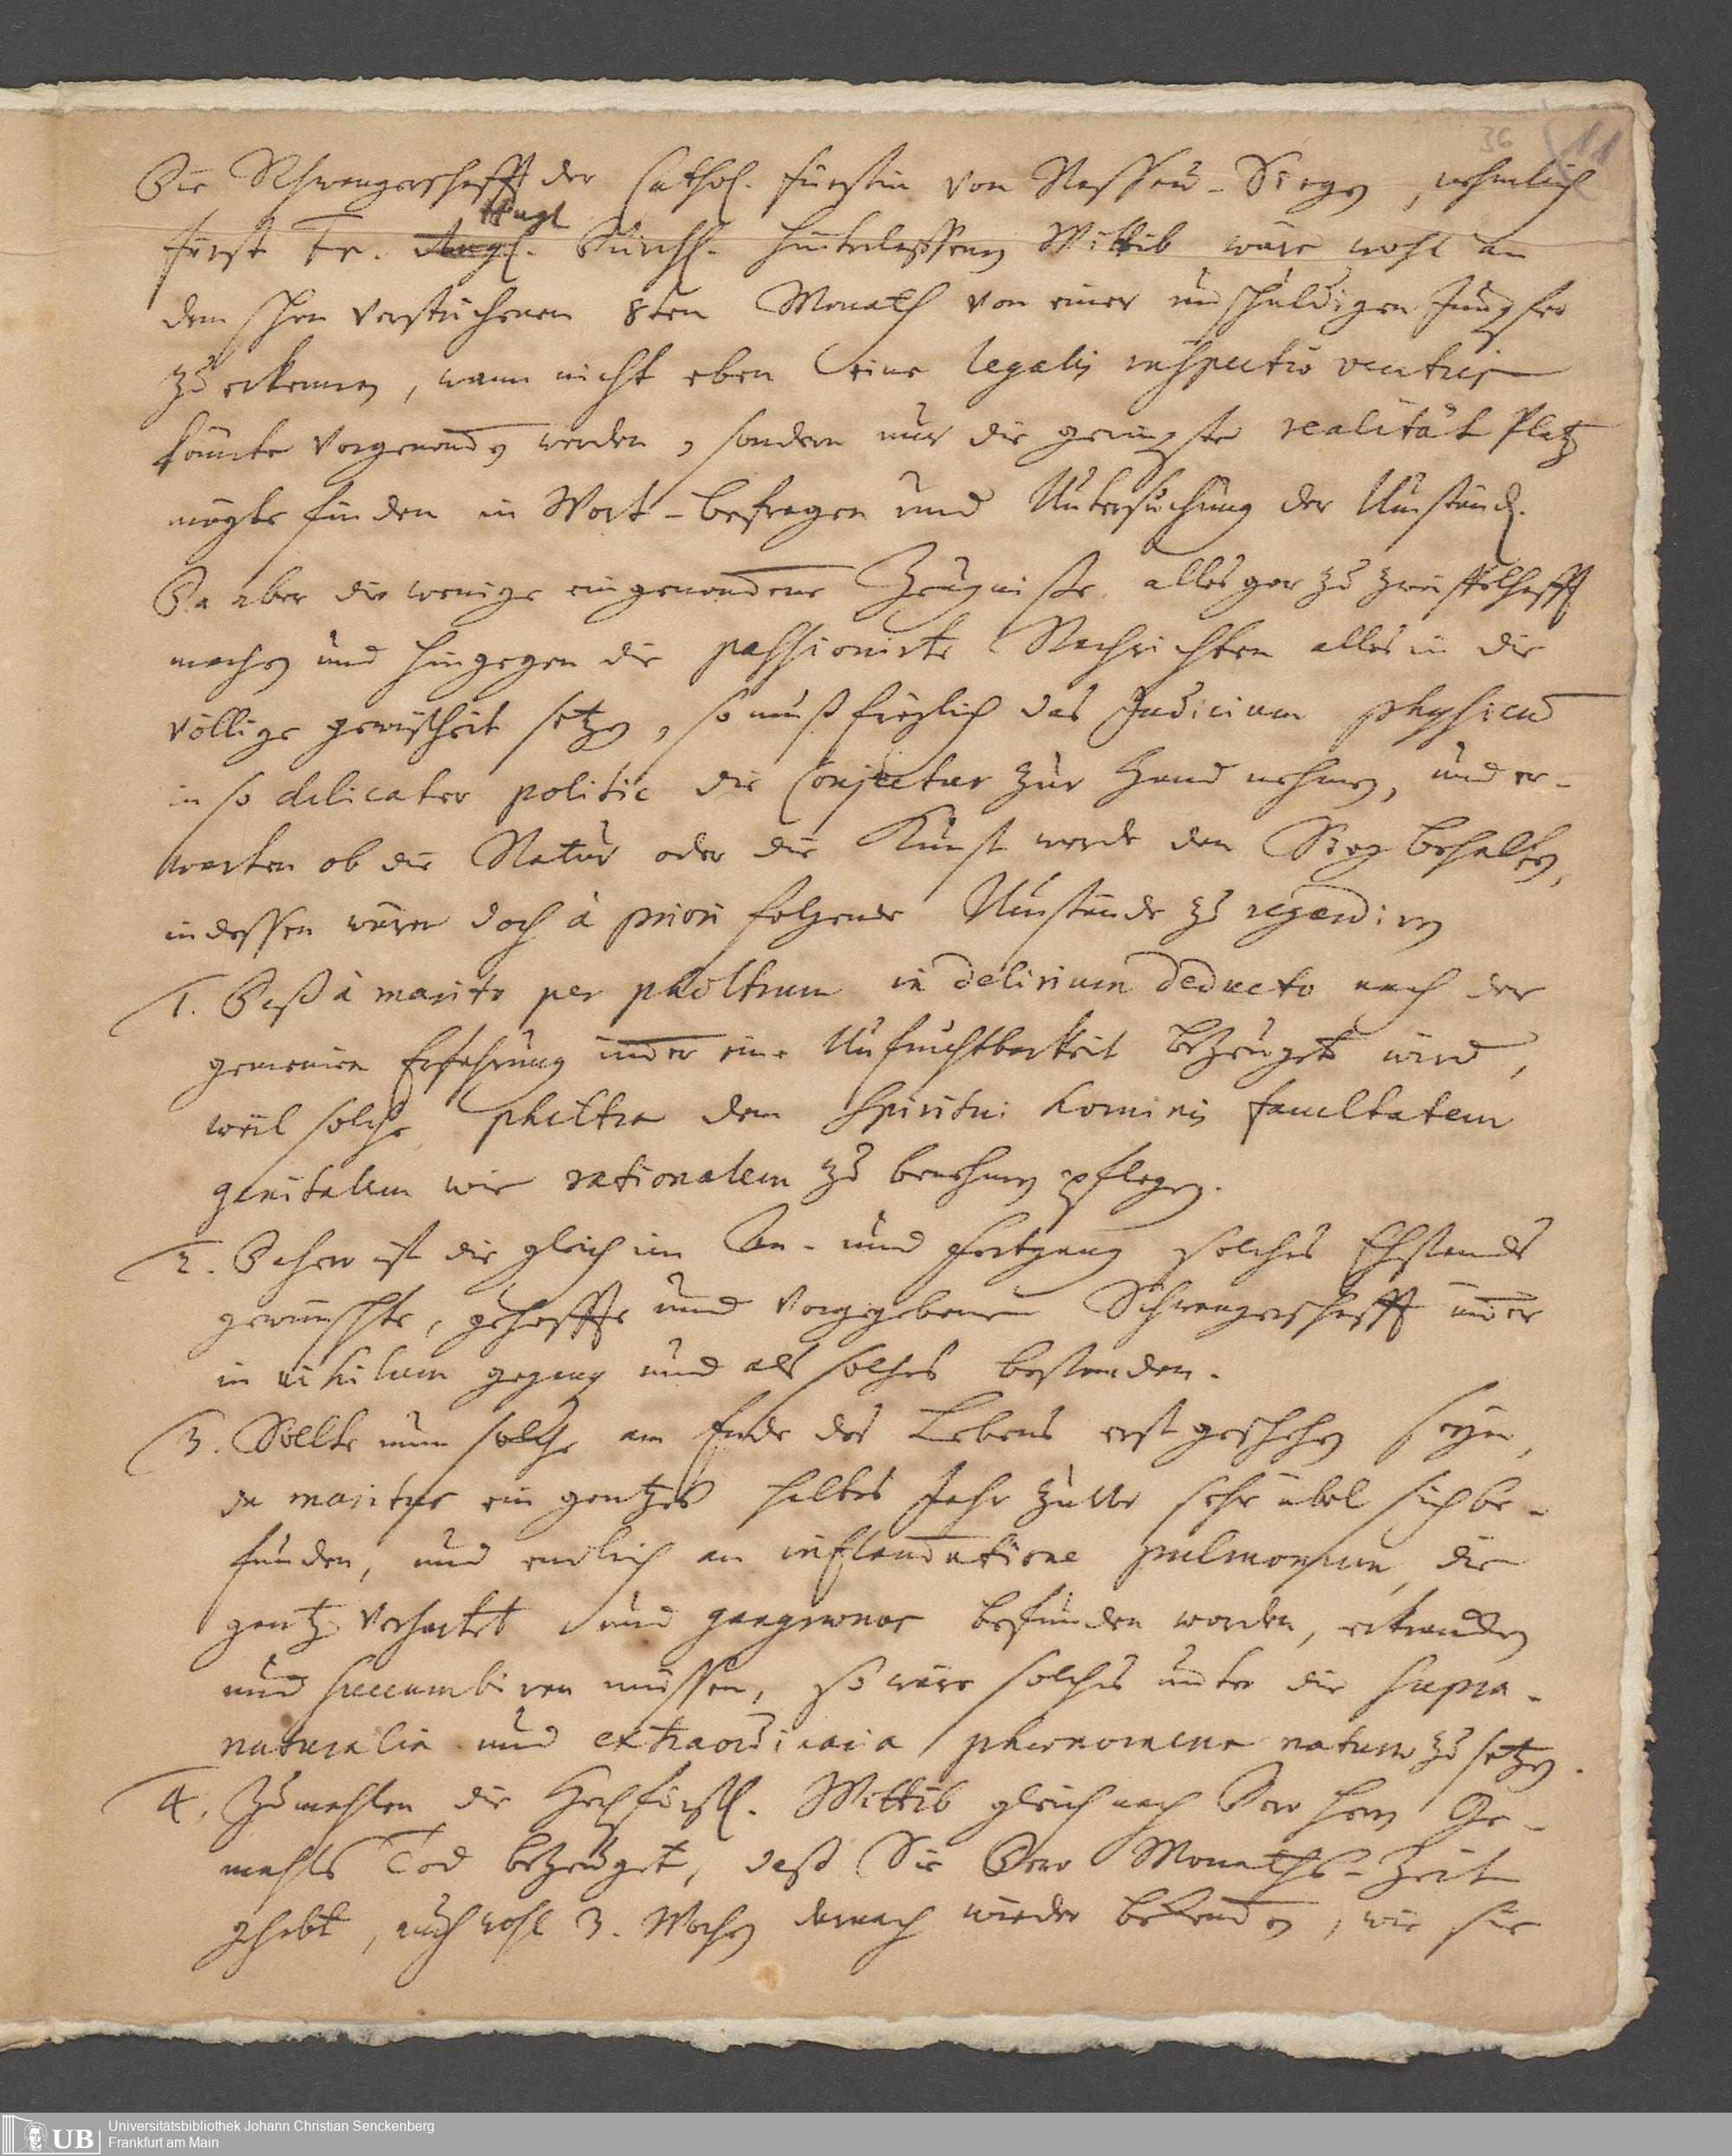 36 11
Die Schwangerschafft der Cathol. Fürstin von Nassau-Siegen, nehmlich
Hugl
Fürst Fr. Hugl. Durchl. hinterlassenen Wittib wäre wohl an
dem schon verstrichenen 8ten Monath von einer unschuldigen Jungfer
zu erkennen, wann nicht eben eine legalis inspectio ventris
könnte vorgenomen werden, sondern nur die geringste realität Platz
mögte finden in Wort-befragen und Untersuchung der Umständ.
Da aber die wenige eingenomene Zeugnisse alles gar zu zweiffelhafft
machen und hingegen die passionirte Nachrichten alles in die
völlige gewißheit setzen, so muß freylich das Judicium physicum
in so delicater politic die Conjectur zur Hand nehmen, und er-
warten ob die Natur oder die Kunst werde den Sieg behalten,
indessen wären doch à priori folgende Umstände zu regardiren
1. Daß à marito per philtrum in delirium deducto nach der
gemeinen Erfahrung imer eine Unfruchtbarkeit bezeuget wird,
weil solche philtra dem spiritui hominis facultatem
genitalem wie rationalem zu benehmen pflegen.
2. Daher ist die gleich im An- und Fortgang solches Ehstands
gewünschte, gehoffte und vorgegebenen Schwangerschafft imer
in nihilum gegang und als solches bestanden.
3. Sollte nun solche am Ende des Lebens erst geschehen seyn,
da maritus ein gantzes halbes Jahr zuvor sehr übel sich be-
funden, und endlich an inflamatione pulmonum, die
gantz verhartet und gangrenos befunden worden, erkrancken
und succumbiren müssen, so wäre solches unter die supra-
naturalia und extraordinaria phaenomena naturae zu setzen.
4. Zumahlen die Hochfürstl. Wittib gleich nach Dero Herrn Ge-
mahls Tod bezeuget, daß Sie Dero Monaths-Zeit
gehabt, auch wohl 3. Wochen darnach wieder bekomen, wie sie
UB Universitätsbibliothek Johann Christian Senckenberg
Frankfurt am Main